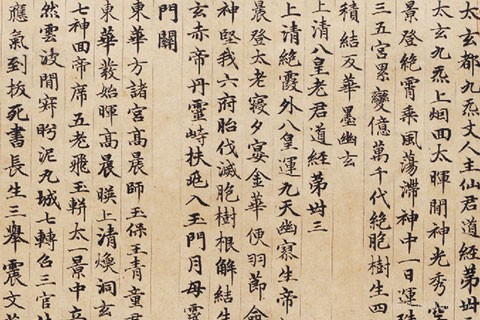 太玄都九炁丈人主仙君道經第卅
太玄九炁上烟回太暉開神光秀空
景登絶霄乘風蕩滯神中一日運珠
三五宮累變億萬千代絶胞樹生四
積結反華墨幽玄
上清八皇老君道經第卅三
上清絶霞外八皇運九天幽寥生帝
晨登太老寢夕宴金華便羽節命
神堅我六府胎代滅胞樹根解結生
玄赤帝丹靈峙扶兆入玉門月母
門關
東華方諸宮高晨師玉保王青童君
東華敷始暉高晨暎上清煥洞玄
七神回帝席五老飛玉輧太一景中
然雲波閒寂盻泥丸城七轉召三官
應氣到拔死書長生三舉震文